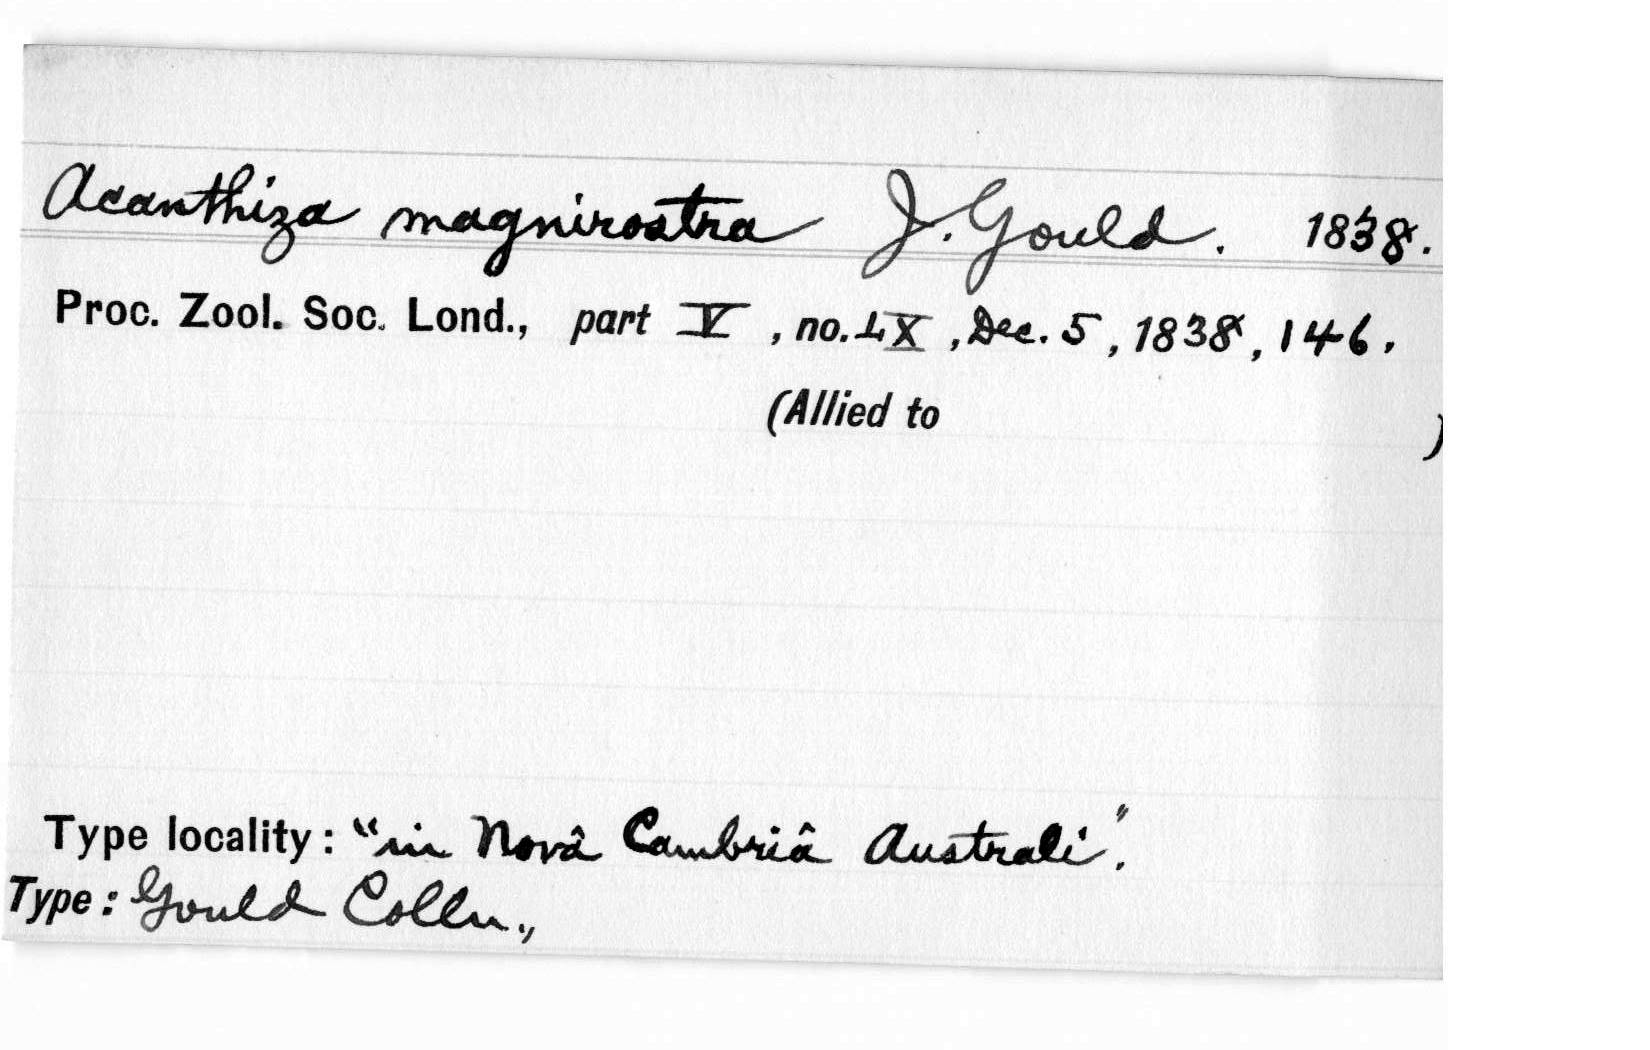 Acanthiza magnirostra J. Gould. 1838.
Proc. Zool. Soc. Lond., part V, no. LX, Dec. 5, 1838, 146.
(Allied to )
Type locality: "in Novâ Cambriâ Australi".
Type: Gould Colln.,